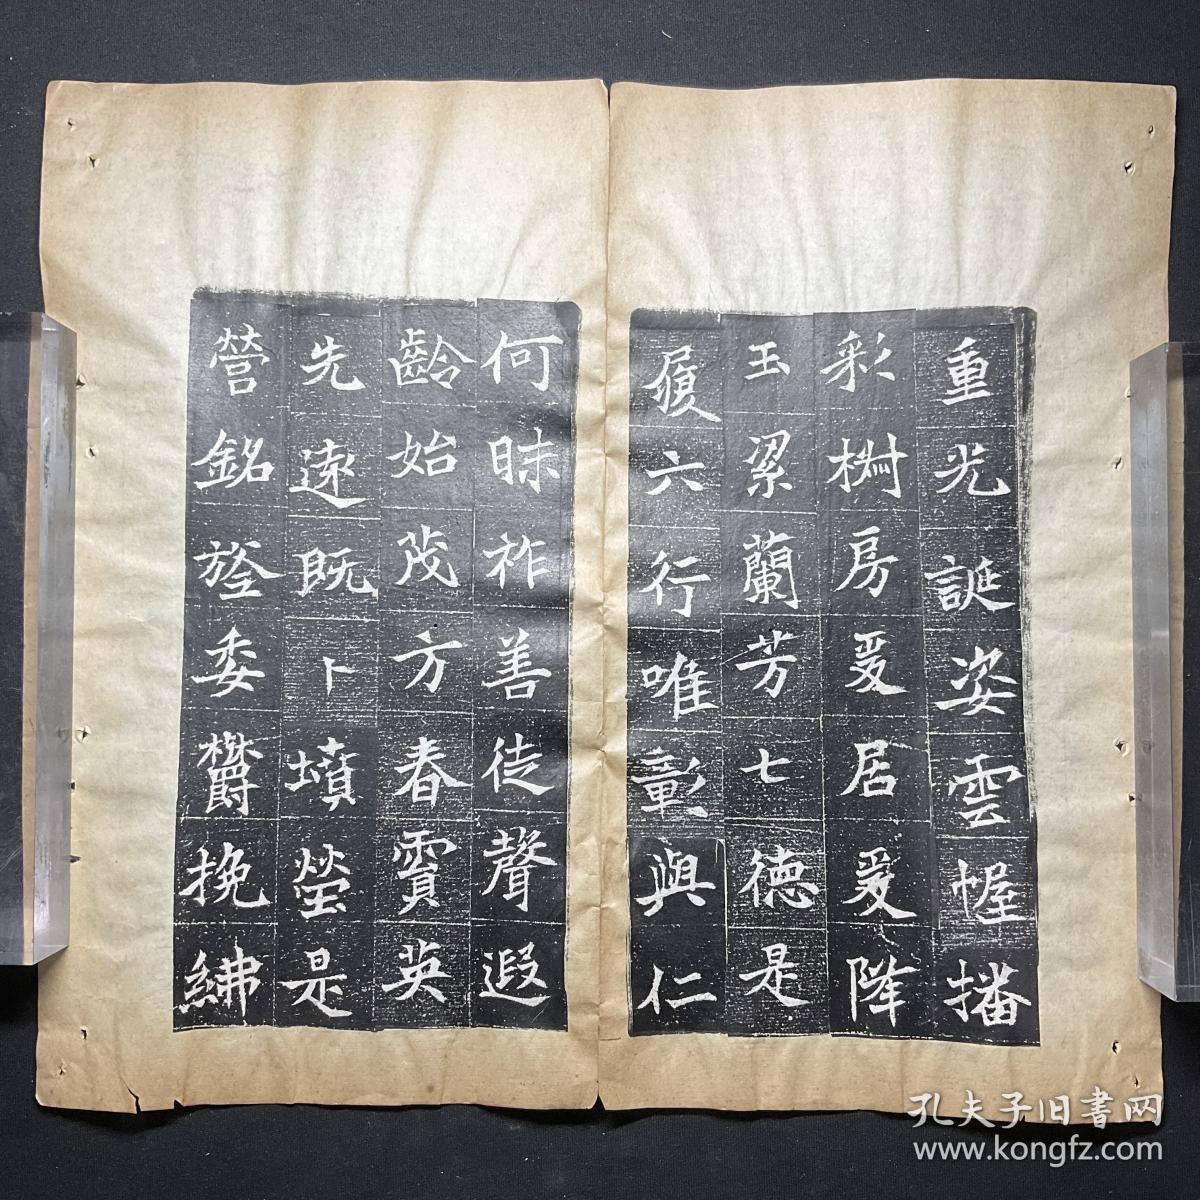 重光誕姿雲幄播
彩樹房爰居爰降
玉梁蘭芳七德是
履六行唯彰與仁
何昧祚善徒聲遐
齡始茂方春霣英
先遠既卜墳塋是
營銘旌委欝挽紼
孔夫子旧書网
www.kongfz.com